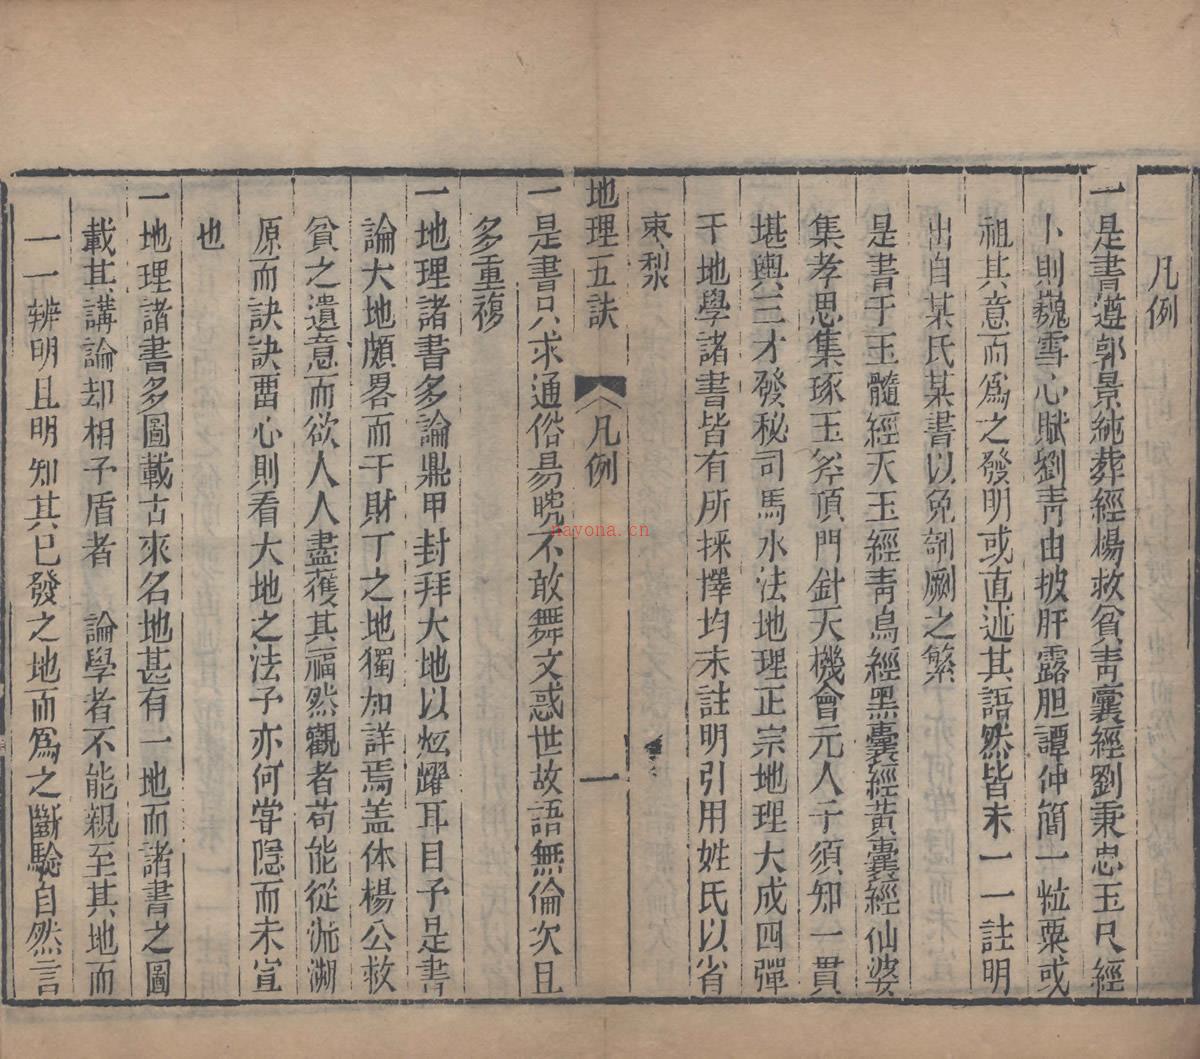 凡例
一是書遵郭景純葬經楊救貧青囊經劉秉忠玉尺經
卜則巍雪心賦劉青由披肝露胆譚仲簡一粒粟或
祖其意而爲之發明或直述其語然皆未一一註明
出自某氏某書以免剞劂之繁
是書于玉髓經天玉經靑烏經黑囊經黃囊經仙婆
集孝思集琢玉斧頂門針天機會元人子須知一貫
堪輿三才發秘司馬水法地理正宗地理大成四彈
子地學諸書皆有所採擇均未註明引用姓氏以省
棗梨
地理五訣 凡例 一
一是書只求通俗易曉不敢舞文惑世故語無倫次且
多重複
一地理諸書多論鼎甲封拜大地以炫耀耳目予是書
論大地頗畧而于財丁之地獨加詳焉盖体楊公救
貧之遺意而欲人人盡獲其福然觀者苟能從流溯
原而訣訣畱心則看大地之法子亦何甞隱而未宣
也
一地理諸書多圖載古來名地甚有一地而諸書之圖
載其講論却相予盾者 論學者不能親至其地而
一一辨明且明知其已發之地而爲之斷騐自然言
nayona.cn